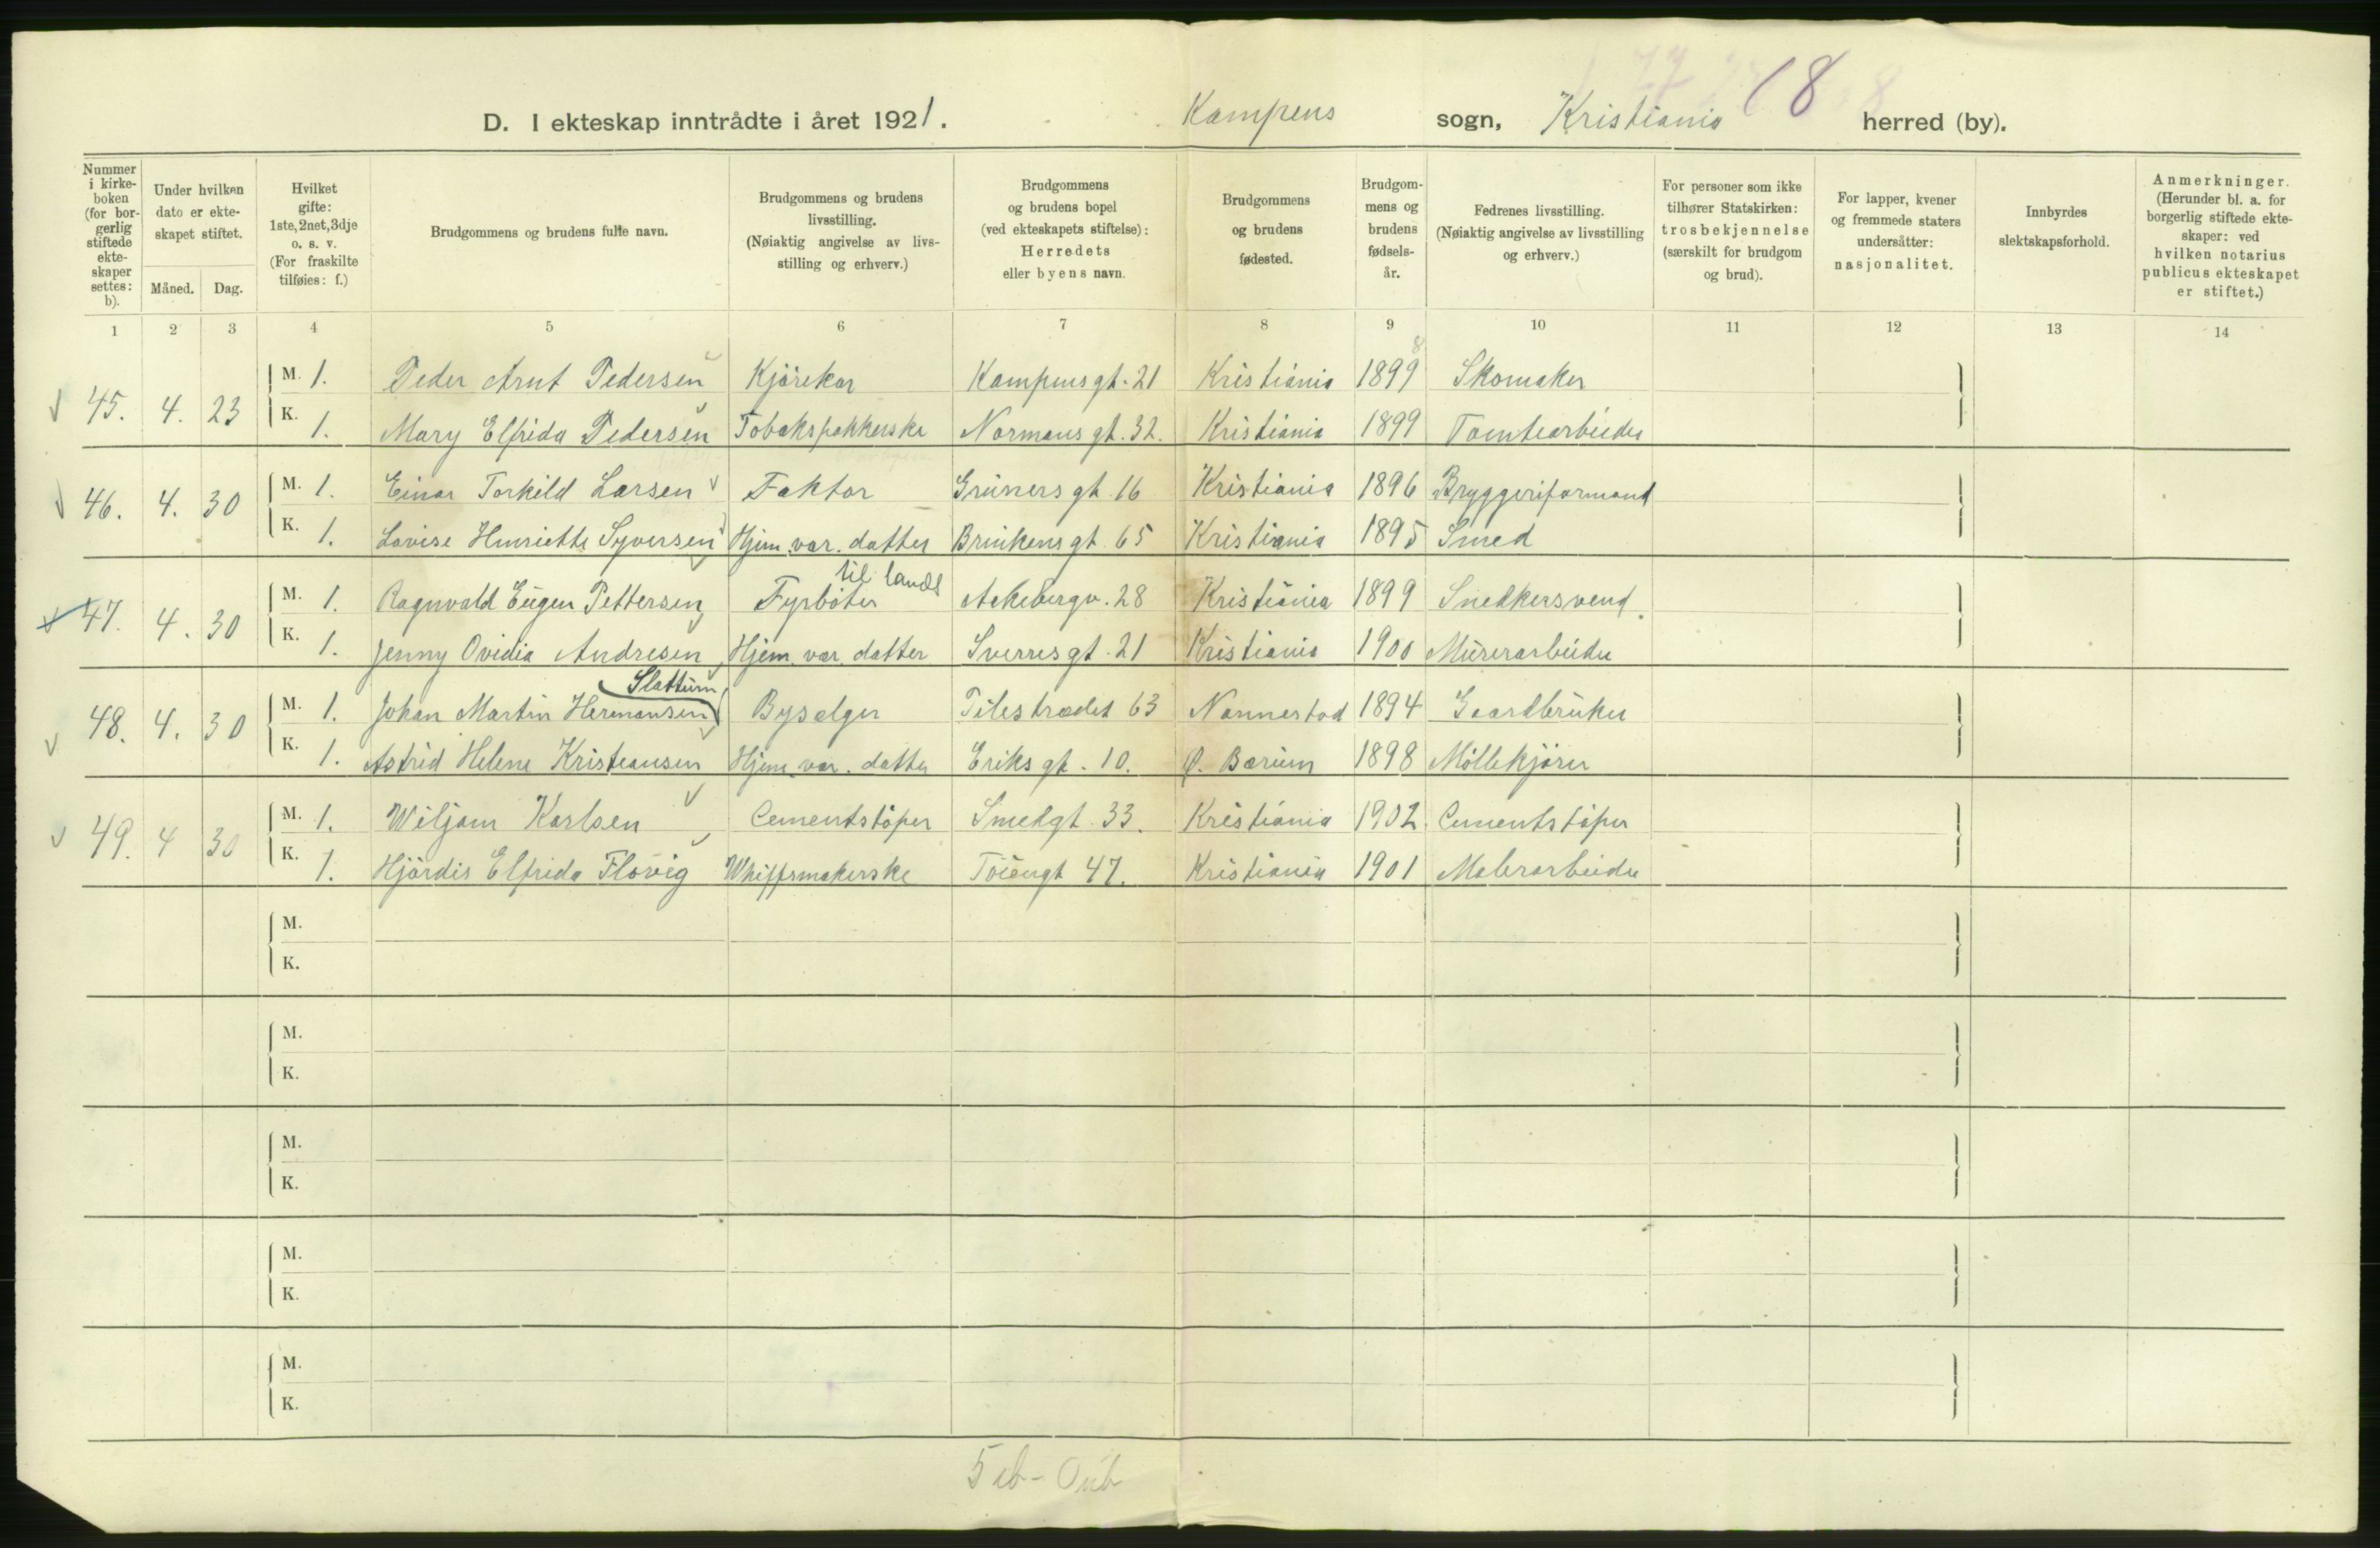 18
D. I ekteskap inntrådte i året 1921. Kampens sogn, Kristiania herred (by).
Nummer i kirkeboken (for borgerlig stiftede ekteskaper settes: b).
Under hvilken dato er ekteskapet stiftet.
Måned. Dag.
Hvilket gifte: 1ste, 2net, 3dje o. s. v. (For fraskilte tilføies: f.)
Brudgommens og brudens fulle navn.
Brudgommens og brudens livsstilling. (Nøiaktig angivelse av livsstilling og erhverv.)
Brudgommens og brudens bopel (ved ekteskapets stiftelse): Herredets eller byens navn.
Brudgommens og brudens fødested.
Brudgommens og brudens fødselsår.
Fedrenes livsstilling. (Nøiaktig angivelse av livsstilling og erhverv.)
For personer som ikke tilhører Statskirken: trosbekjennelse (særskilt for brudgom og brud).
For lapper, kvener og fremmede staters undersåtter: nasjonalitet.
Innbyrdes slektskapsforhold.
Anmerkninger. (Herunder bl. a. for borgerlig stiftede ekteskaper: ved hvilken notarius publicus ekteskapet er stiftet.)
1 2 3 4 5 6 7 8 9 10 11 12 13 14
M. 1. Peder Arnt Pedersen Kjörekar Kampensgt. 21 Kristiania 1899 8 Skomaker
45. 4. 23
K. 1. Mary Elfrida Pedersen Tobakspakkerske Normans gt. 32. Kristiania 1899 Tomtearbeider
M. 1. Einar Torkild Larsen Faktor Grüners gt. 16 Kristiania 1896 Bryggeriformand
46. 4. 30
K. 1. Lovise Henriette Syversen Hjem. vær. datter Brinkens gt. 65 Kristiania 1895 Smed
til lands
M. 1. Ragnvald Eugen Pettersen Fyrböter Akebergv. 28 Kristiania 1899 Snedkersvend.
47. 4. 30
K. 1. Jenny Ovidia Andresen Hjem. vær. datter Sverres gt. 21 Kristiania 1900 Murerarbeider
Slattum
M. 1. Johan Martin Hermansen Byselger Tilestrædet 63 Nannestad 1894 Gaardbruker
48. 4. 30
K. 1. Astrid Helene Kristiansen Hjem. vær. datter Eriks gt. 10. Ø. Bærum 1898 Möllekjörer
M. 1. Wiljam Karlsen Cementstöper Smedgt. 33. Kristiania 1902. Cementstöper
49. 4 30
K. 1. Hjördis Elfrida Flovig Whiffsmakerske Töiengt 47. Kristiania 1901 Malerarbeider
M.
K.
M.
K.
M.
K.
M.
K.
M.
K.